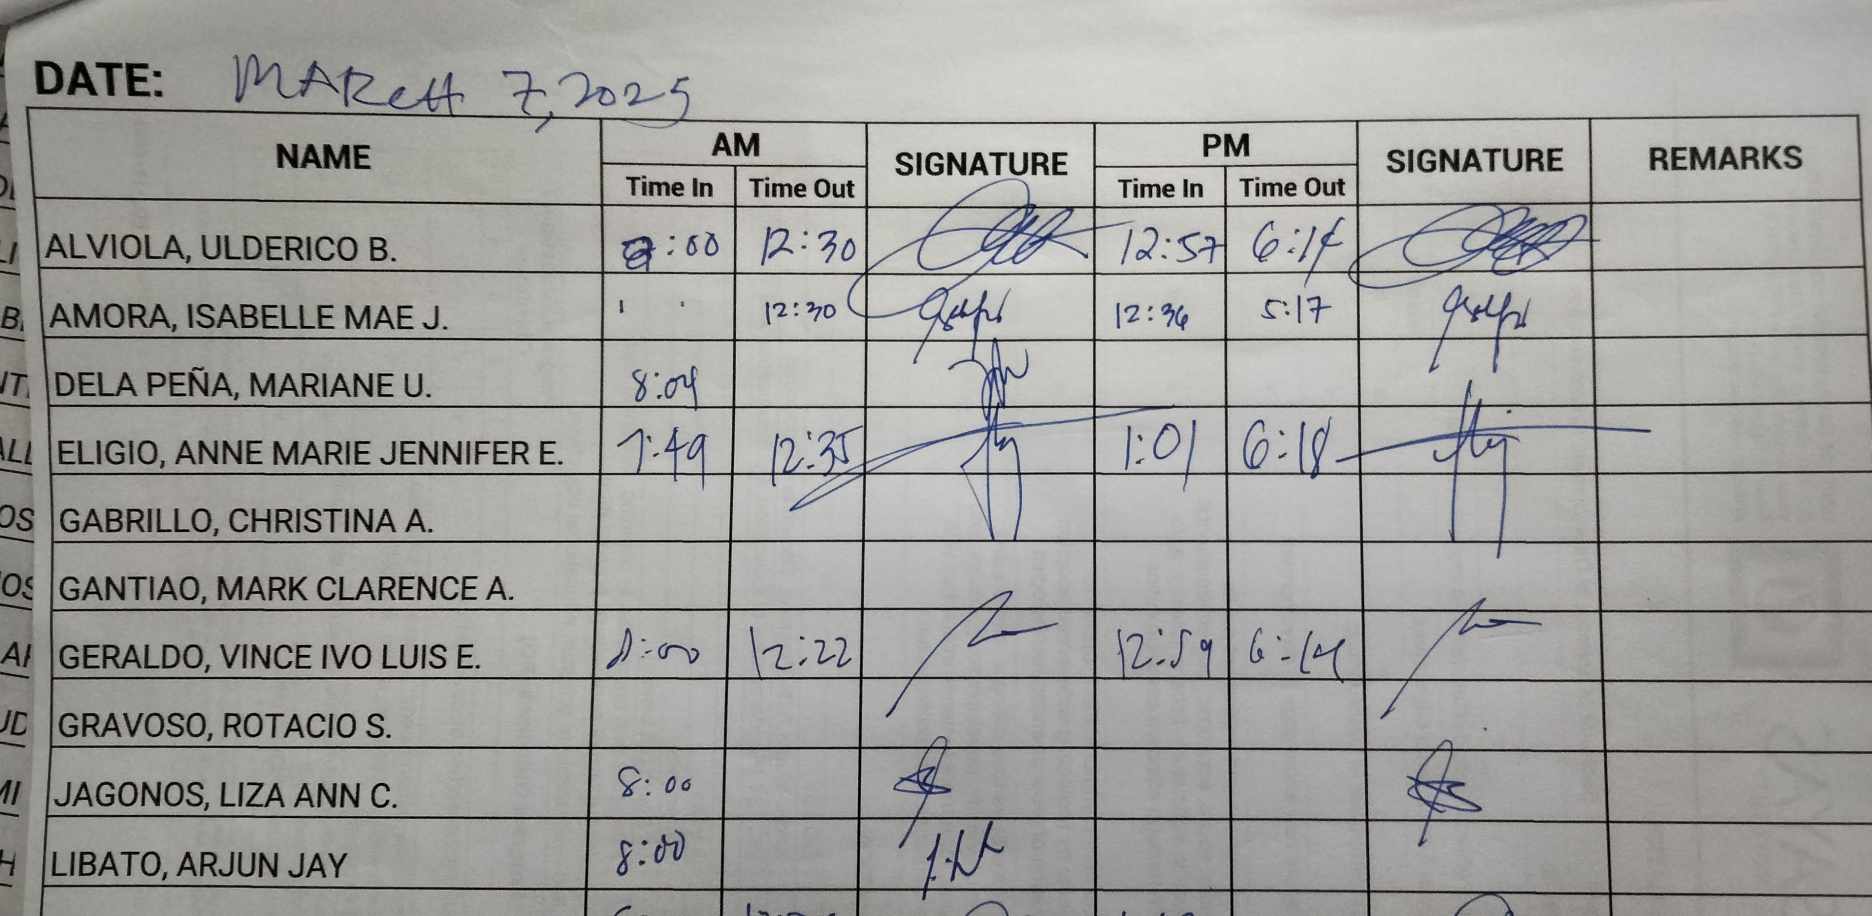 DATE: MARCH 7, 2025
NAME AM SIGNATURE PM SIGNATURE REMARKS
Time In Time Out Time In Time Out
ALVIOLA, ULDERICO B. :00 12:30 12:57 6:14
AMORA, ISABELLE MAE J. 12:30 12:36 5:17
DELA PEÑA, MARIANE U. 8:04
ELIGIO, ANNE MARIE JENNIFER E. 7:49 12:35 1:01 6:18
GABRILLO, CHRISTINA A.
GANTIAO, MARK CLARENCE A.
GERALDO, VINCE IVO LUIS E. 8:00 12:22 12:59 6:14
GRAVOSO, ROTACIO S.
JAGONOS, LIZA ANN C. 8:00
LIBATO, ARJUN JAY 8:00